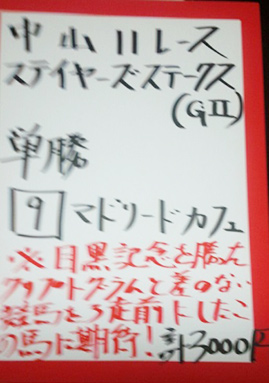 中山11レース
ステイヤーズステークス
(GII)
単勝
9 マドリードカフェ
※目黒記念を勝った
クリプトグラムと差のない
競馬を3走前にしたこ
の馬に期待! 計3000円